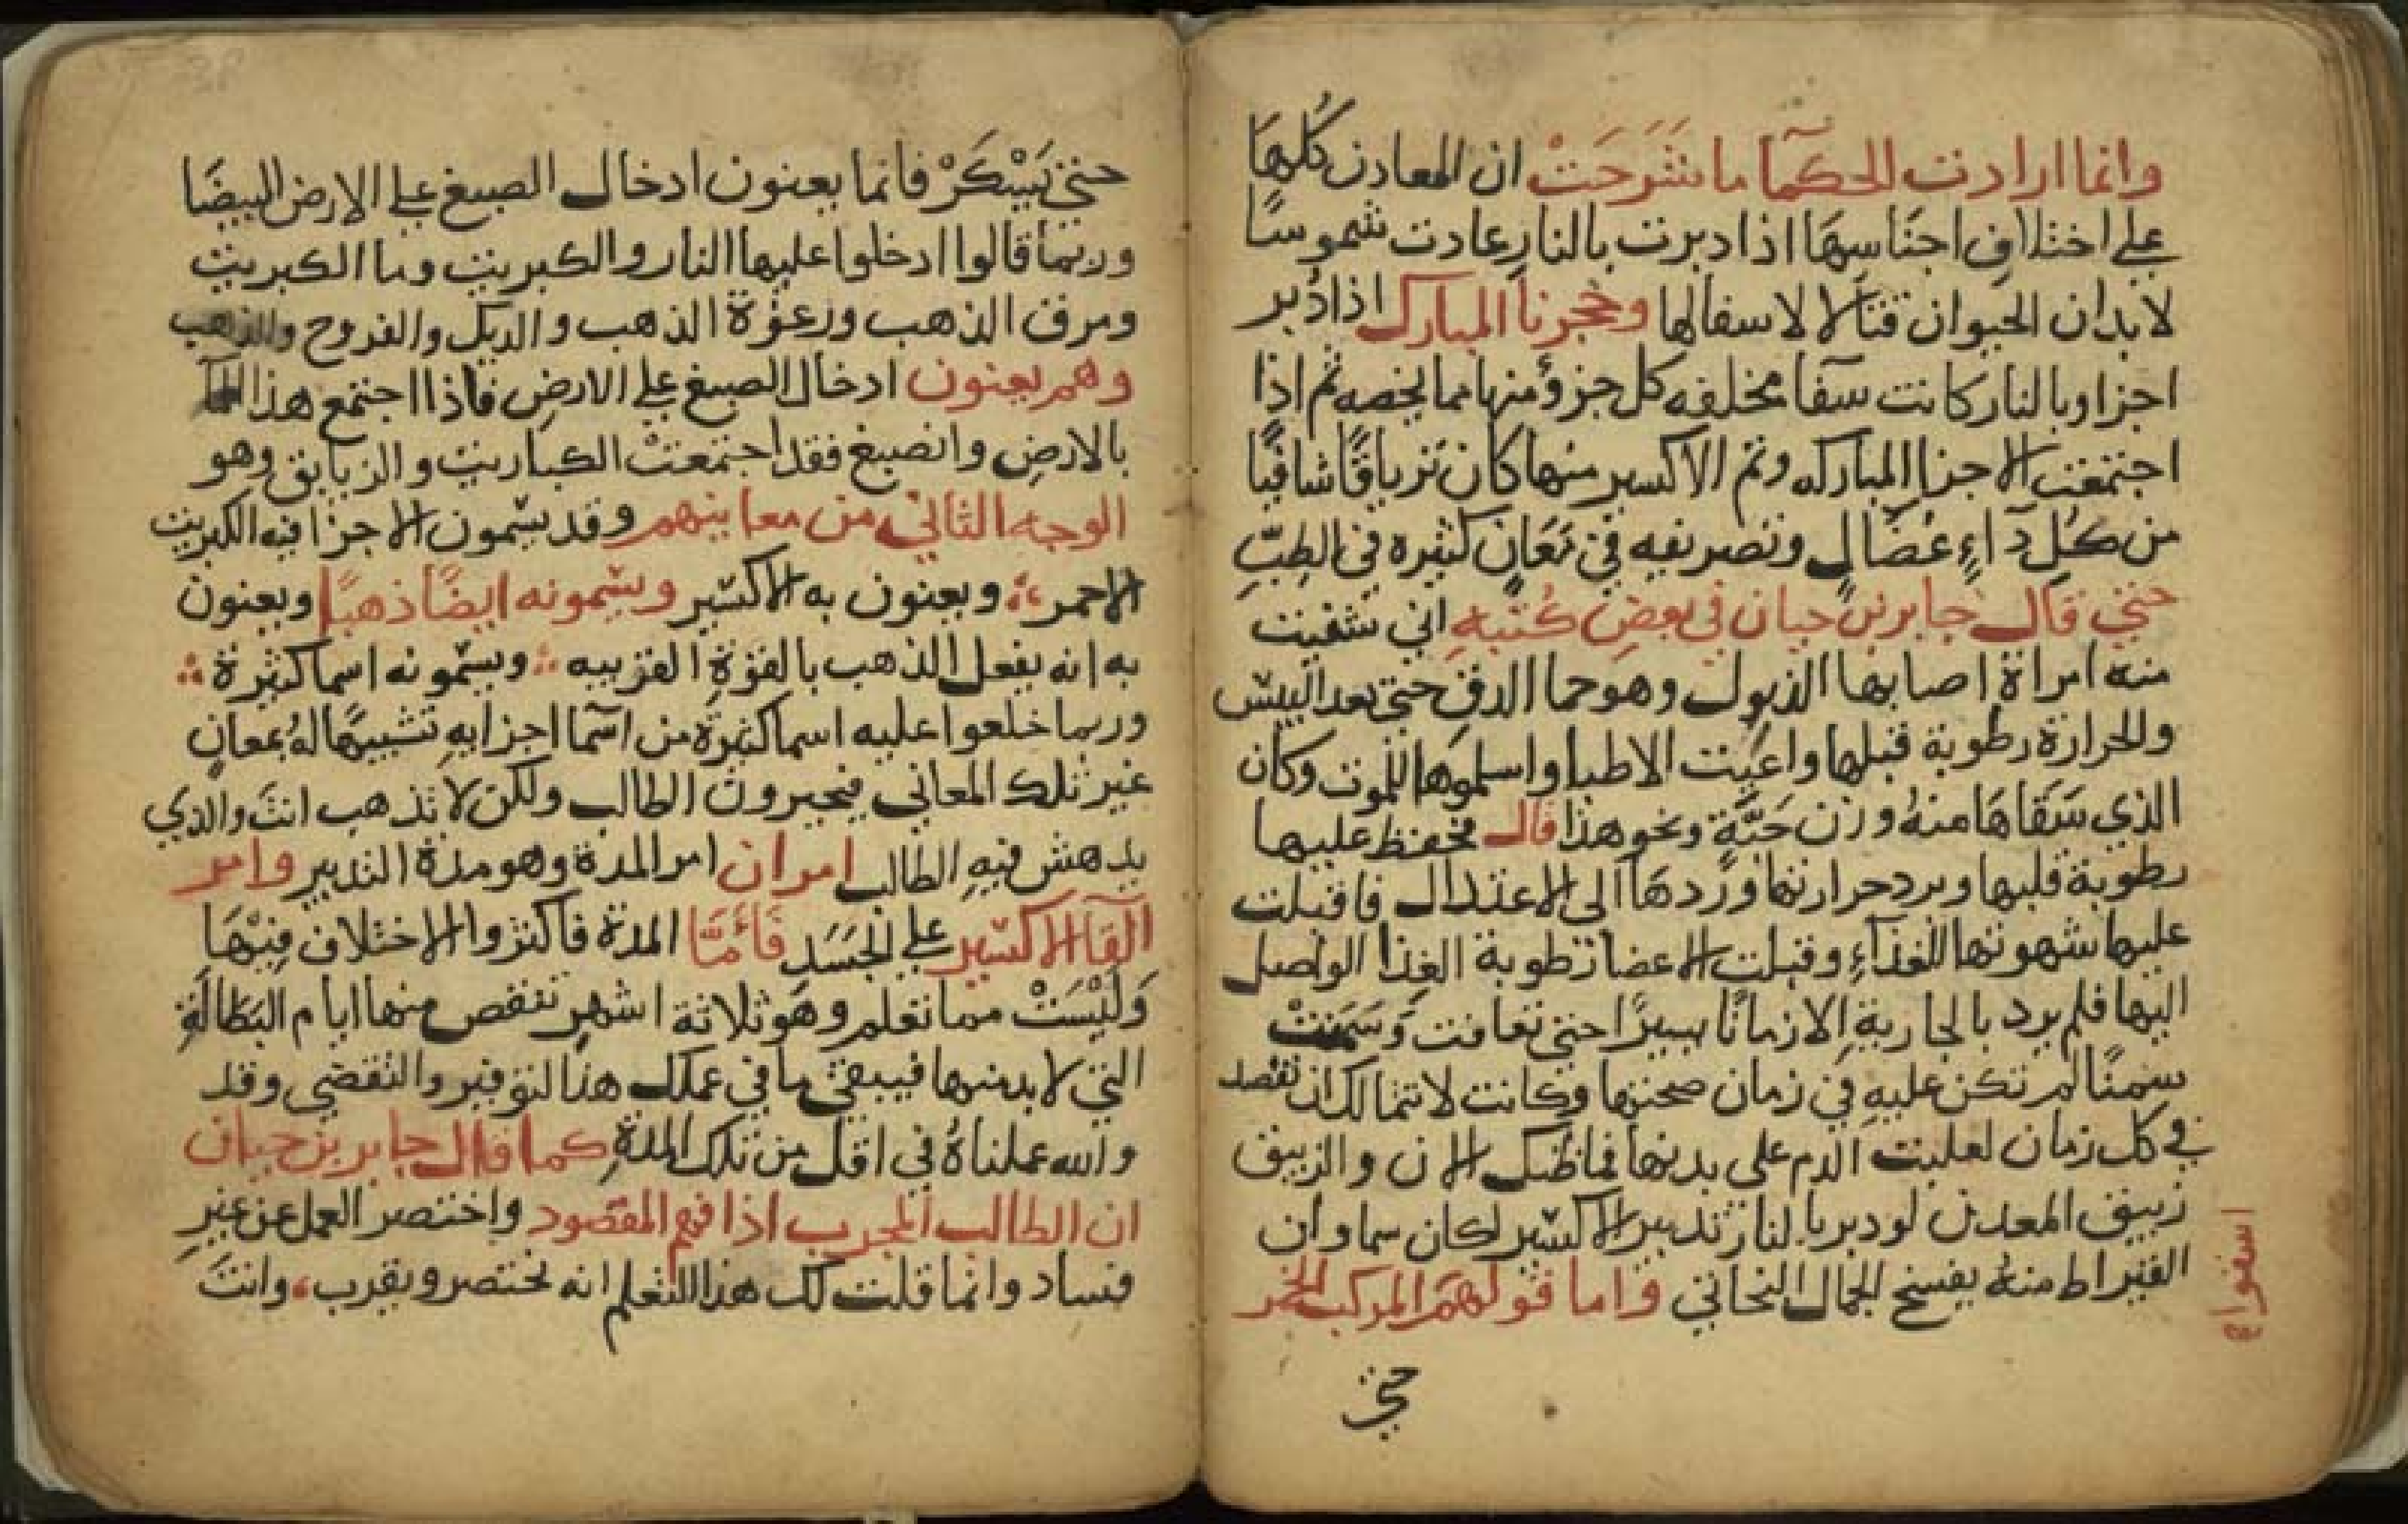 وانما ارادت الحكمآ ما شَرَحَتْ ان المعادن كُلهَا
علي اختلاف اجنَاسِهَا اذا دبرت بالنارِ عادت شموسًا
لابدان الحيوان قتالا لاسفالها وحجرنا المبارك اذا دُبر
اجزاوبالنار كانت سقا مختلفه كل جزؤ منها بما يخصه ثم اذا
اجتمعت الاجزا المباركه وتم الاكسير منها كان ترياقًا شافيًا
من كُلِ دآءٍ عُضَالٍ وتصريفه في مَعَانٍ كثيره في الطِبِّ
حتي قال جابر بن حيان في بعضِ كُتبِهِ اني شفيت
منه امراة اصابها الذبول وهو حما الدق حتي بعد اليبس
والحرارة رطوبة قبلها واعيت الاطبا واسلموها للموت وكان
الذي سَقَاهَا منهُ وزن حَبَّةٍ ونحو هذا قال فحفظ عليها
رطوبة قلبها وبرد حرارتها وردهَا الي الاعتدال فاقبلت
عليها شهوتها للغذآءِ وقبلت الاعضا رطوبة الغذا الواصل
اليها فلم يرد بالجاريةِ الا زمانًا يسيرًا حتي تعافت وَسَمَنتْ
سِمنًا لم تكن عليهِ في زمان صحتها وكانت لا تتمالك ان تفصد
في كل زمان لغلبت الدم على بدنها فما ظنك الان والزيبق
زيبق المعدن لو دبر بالنار تدبير الاكسير لكان سما وان
القيراط منهُ يفسخ الجمال البخاتي واما قولهم المركب الخمر
اسفواع
حتي
حتي يَسْكَرْ فانما يعنون ادخال الصبغ علي الارض البيضَا
وربما قالوا ادخلوا عليها النار والكبريت وما الكبريت
ومرق الذهب ورغوة الذهب والديك والفروج والذهب
وهم يعنون ادخال الصبغ علي الارضِ فاذا اجتمع هذا المآ
بالارضِ وانصبغ فقد اجتمعتْ الكباريت والزيابق وهو
الوجه الثاني من معاينهم وقد يسمون الاجزا فيه الكبريت
الاحمر ؞ ويعنون به الاكسير ويسمونه ايضًا ذهبًا ويعنون
به انه يفعل الذهب بالقوةِ القريبه ؞ ويسمونه اسما كثيرة ؞
وربما خلعوا عليه اسما كثيرة من اسما اجزايهِ تشبيهًا لهُ بمعانٍ
غير تلك المعاني فيحيرون الطالب ولكن لا تذهب انتَ والذي
يدهش فيهِ الطالب امران امر المدة وهو مدة التدبير وامر
القآ الاكسير علي الجَسَدِ فَأَمَّا المدة فاكثروا الاختلاف فيْهَا
وَليْسَتْ مما نعلم وهو ثلاثة اشهرٍ تنقص منها ايام البَطالَةِ
التي لابد منها فيبقي ما في عملك هذا التوفير والتقضي وقد
والله عملناهُ في اقل من تلك المدةِ كما قال جابر بن حيان
ان الطالب المجرب اذا فهم المقصود واختصر العمل عن غيرِ
فساد وانما قلت لك هذا لتعلم انه يختصر ويقرب، وانتَ